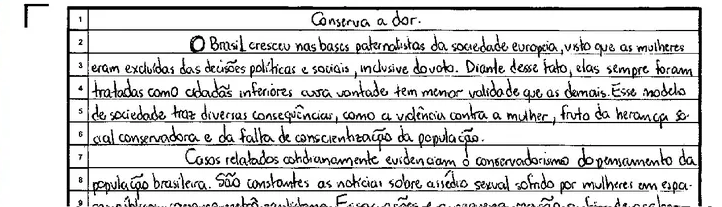 1 Conserva a dor.
2 O Brasil cresceu nas bases paternalistas da sociedade europeia, visto que as mulheres
3 eram excluídas das decisões políticas e sociais, inclusive do voto. Diante desse fato, elas sempre foram
4 tratadas como cidadãs inferiores cuja vontade tem menor validade que as demais. Esse modelo
5 de sociedade traz diversas consequências, como a violência contra a mulher, fruto da herança so-
6 cial conservadora e da falta de conscientização da população.
7 Casos relatados cotidianamente evidenciam o conservadorismo do pensamento da
8 população brasileira. São constantes as notícias sobre assédio sexual sofrido por mulheres em espa-
9